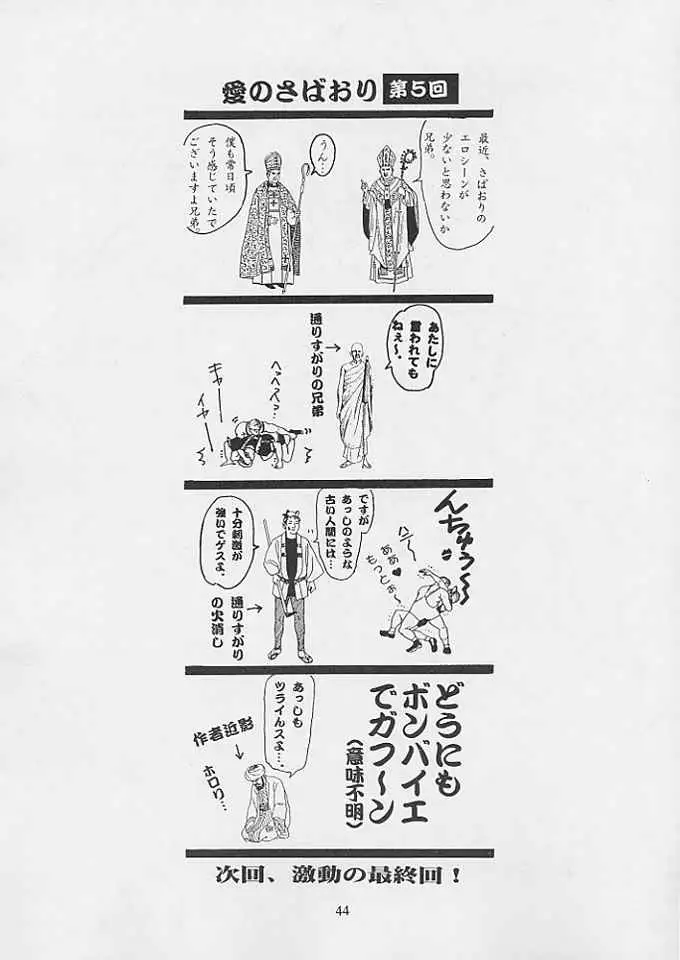 愛のさばおり 第5回
最近、さばおりの
エロシーンが
少ないと思わないか
兄弟。
うん…
僕も常日頃
そう感じていたで
ございますよ兄弟。
あたしに
言われても
ねぇ〜。
通りすがりの兄弟
へっへっへっ…
キャー
イヤー
んちゅう〜〜
ハァー
ああ♥
もっとぉ〜
ですが
あっしのような
古い人間には…
十分刺激が
強いでゲスよ。
通りすがり
の火消し
どうにも
ボンバイエ
でガフ〜ン
(意味不明)
あっしも
ツライんスよ…。
作者近影
ホロリ…
次回、激動の最終回!
44